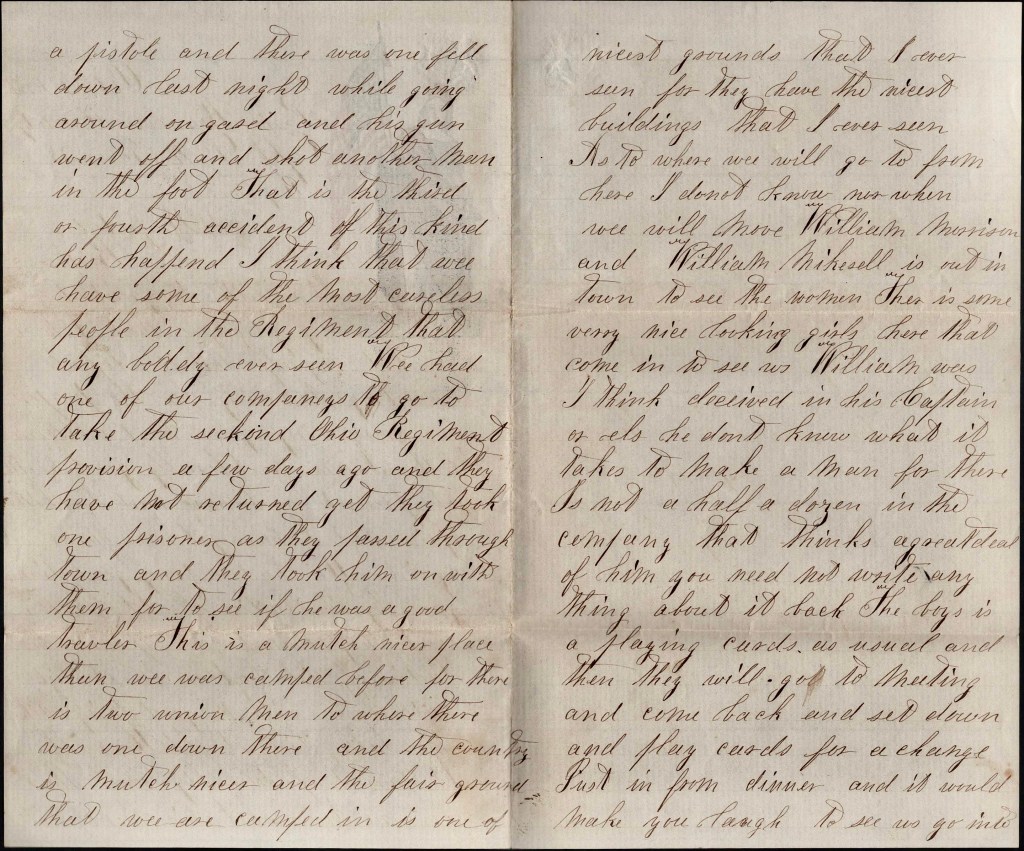 a pistole and there was one fell
down last night while going
around on gased and his gun
went off and shot another man
in the foot That is the third
or fourth accident of this kind
has happend I think that wee
have some of the most careless
people in the Regiment that
any boddy ever seen Wee had
one of our companeys to go to
take the seckond Ohio Regiment
provision a few days ago and they
have not returned yet they took
one prisoner as they passed through
town and they took him on with
them for to see if he was a good
travler This is a mutch nicer place
than wee was camped before for there
is two union men to where there
was one down there and the country
is mutch nicer and the fair ground
that wee are camped in is one of
nicest grounds that I ever
seen for they have the nicest
buildings that I ever seen
As to where wee will go to from
here I donot know nor when
wee will move William Morrison
and William Mikesell is out in
town to see the women Ther is some
verry nice looking girls here that
come in to see us William was
I think deceived in his Captain
or els he dont know what it
takes to make a man for there
Is not a half a dozen in the
company that thinks agreatdeal
of him you need not write any
thing about it back The boys is
a playing cards. as usual and
then they will go to meeting
and come back and set down
and play cards for a change
Just in from dinner and it would
make you laugh to see us go into